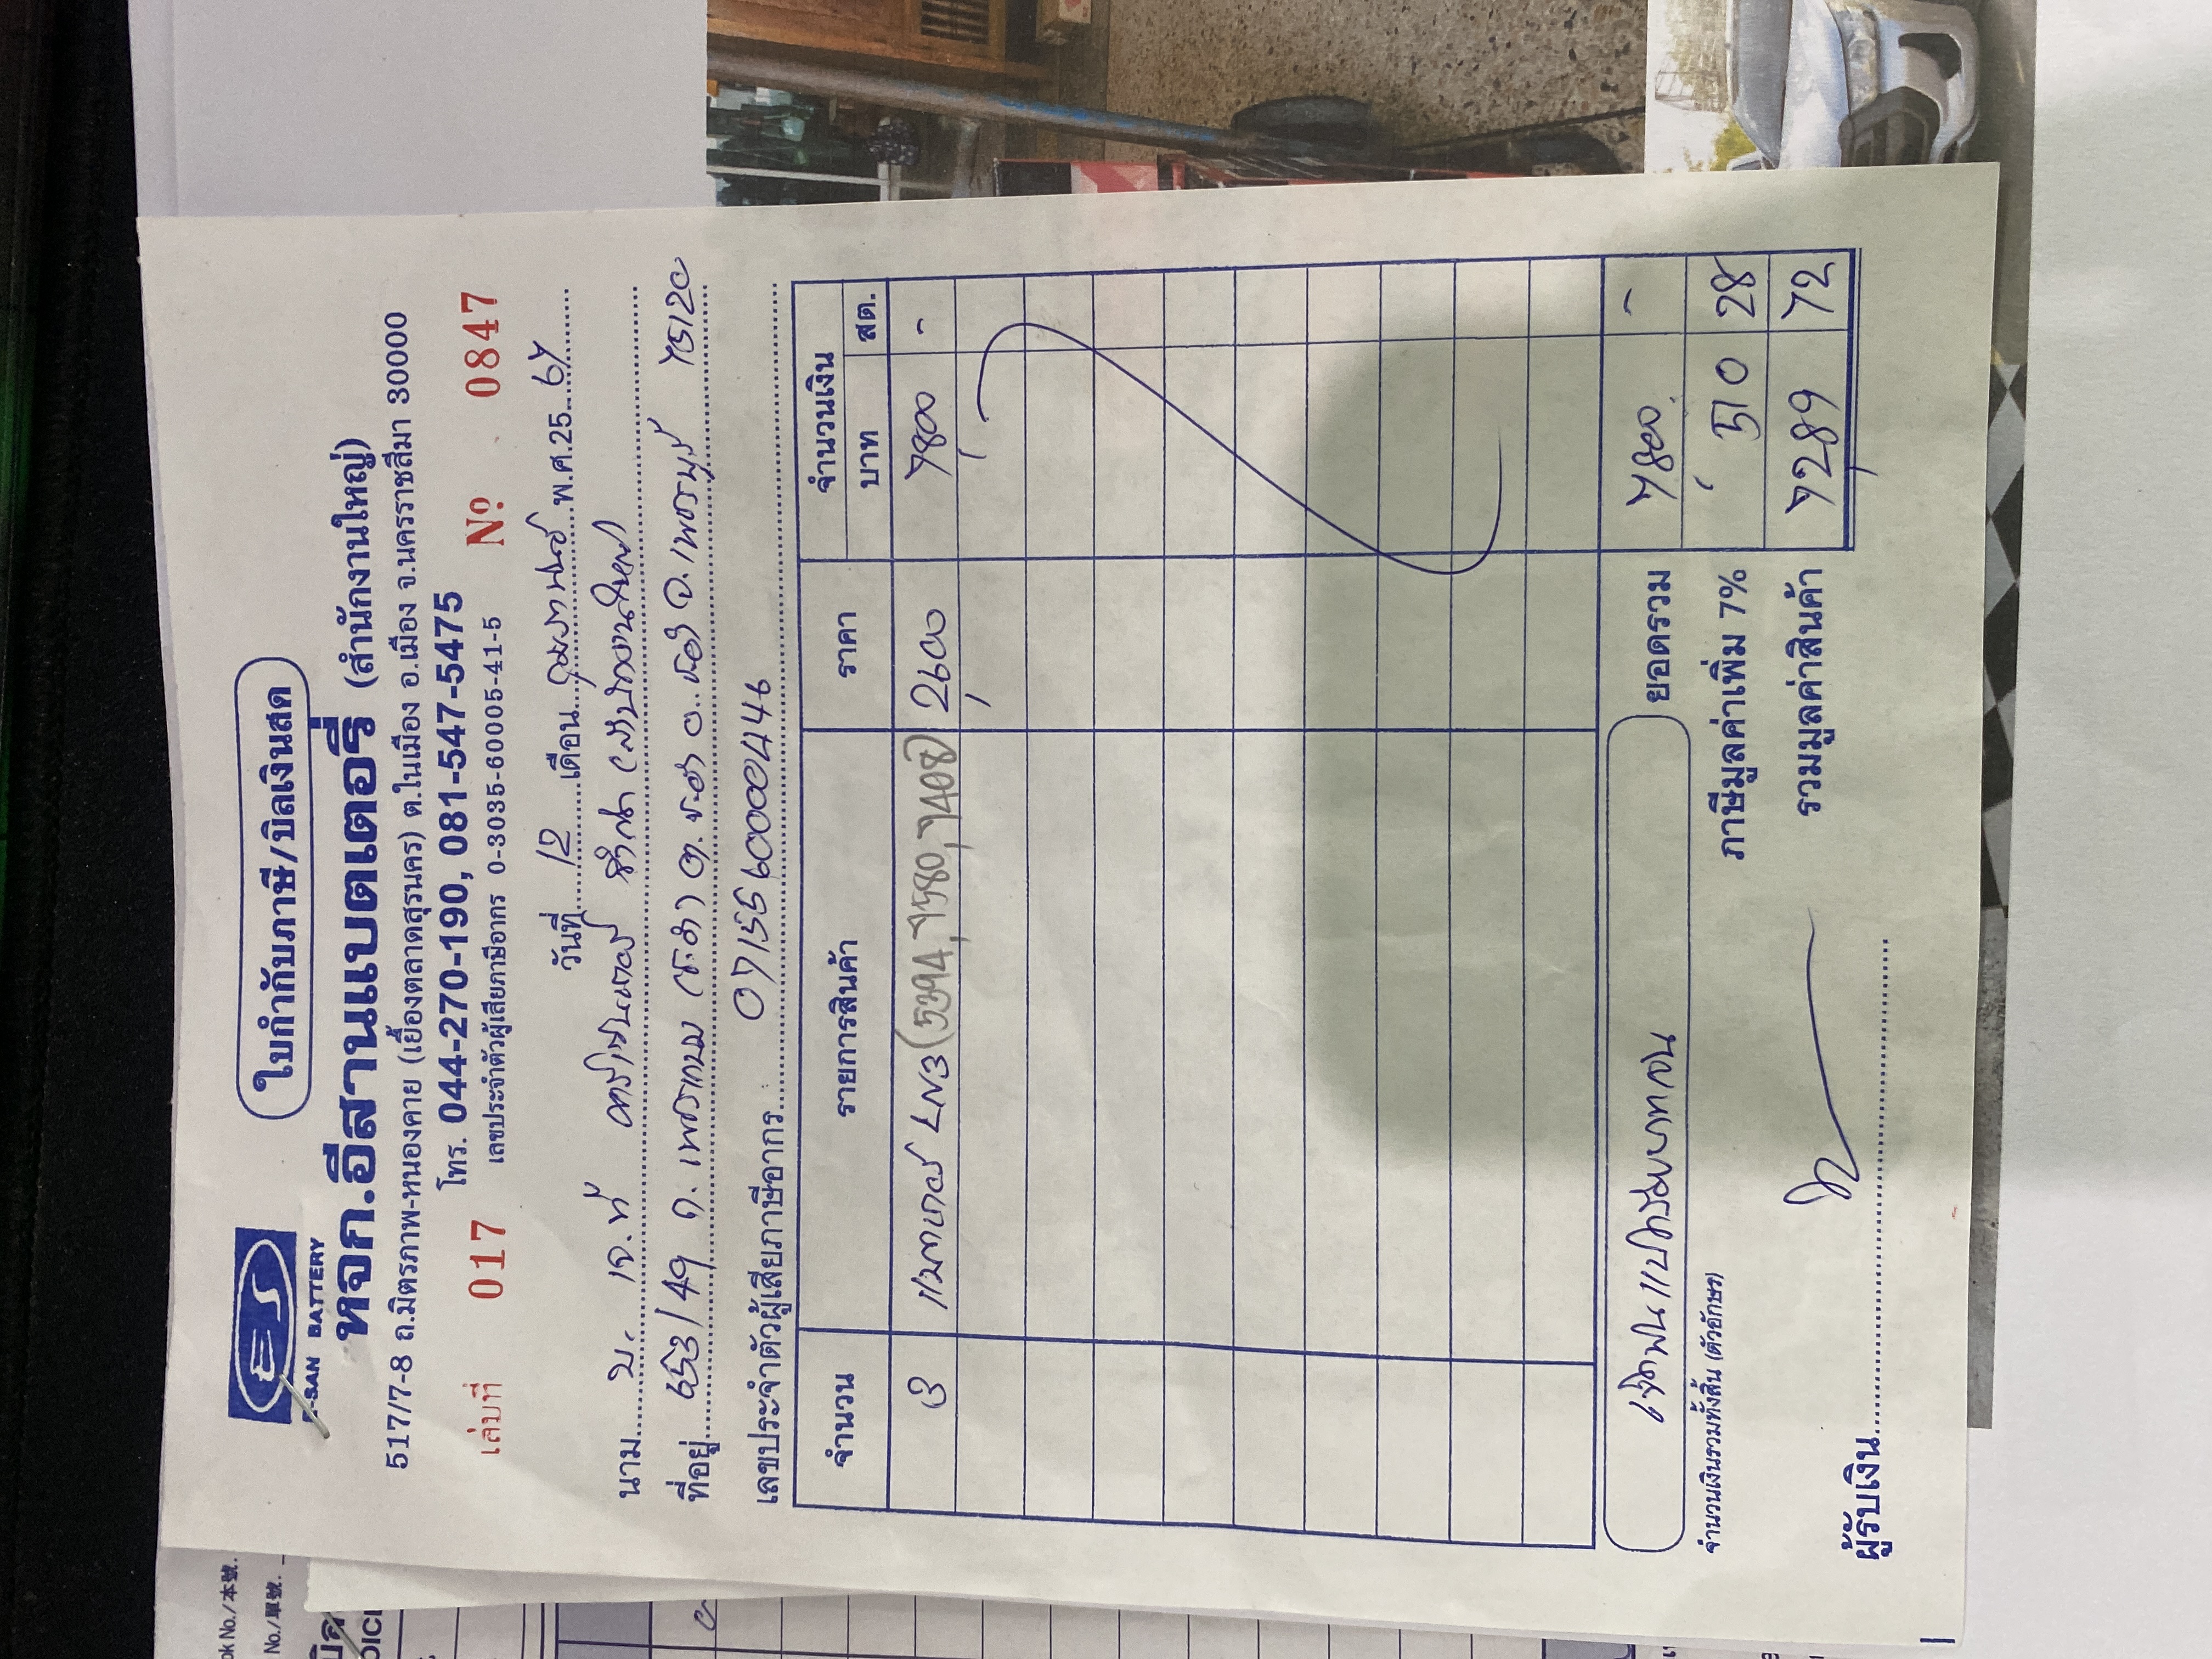 ใบกำกับภาษี/บิลเงินสด
E-SAN BATTERY
หจก.อีสานแบตเตอรี่ (สำนักงานใหญ่)
517/7-8 ถ.มิตรภาพ-หนองคาย (เยื้องตลาดสุรนคร) ต.ในเมือง อ.เมือง จ.นครราชสีมา 30000
โทร. 044-270-190, 081-547-5475
เล่มที่ 017 เลขประจำตัวผู้เสียภาษีอากร 0-3035-60005-41-5 Nº 0847
วันที่ 12 เดือน กุมภาพันธ์ พ.ศ.25 67
นาม บ. เจ.ที (สำนักงานใหญ่)
ที่อยู่ 653/49 ถ. เพชรเกษม (ช.อำ) ต. ชะอำ อ. ชะอำ จ. เพชรบุรี 76120
เลขประจำตัวผู้เสียภาษีอากร 0715560000446
จำนวน รายการสินค้า ราคา จำนวนเงิน
บาท สต.
3 แบตเตอรี่ LN3 (5394, 7580, 7408) 2600 7800 -
ยอดรวม 7800 -
ภาษีมูลค่าเพิ่ม 7% 510 28
รวมมูลค่าสินค้า 7289 72
เจ็ดพันแปดร้อยบาทถ้วน
จำนวนเงินรวมทั้งสิ้น (ตัวอักษร)
ผู้รับเงิน
ok No./本號.
No./單號.